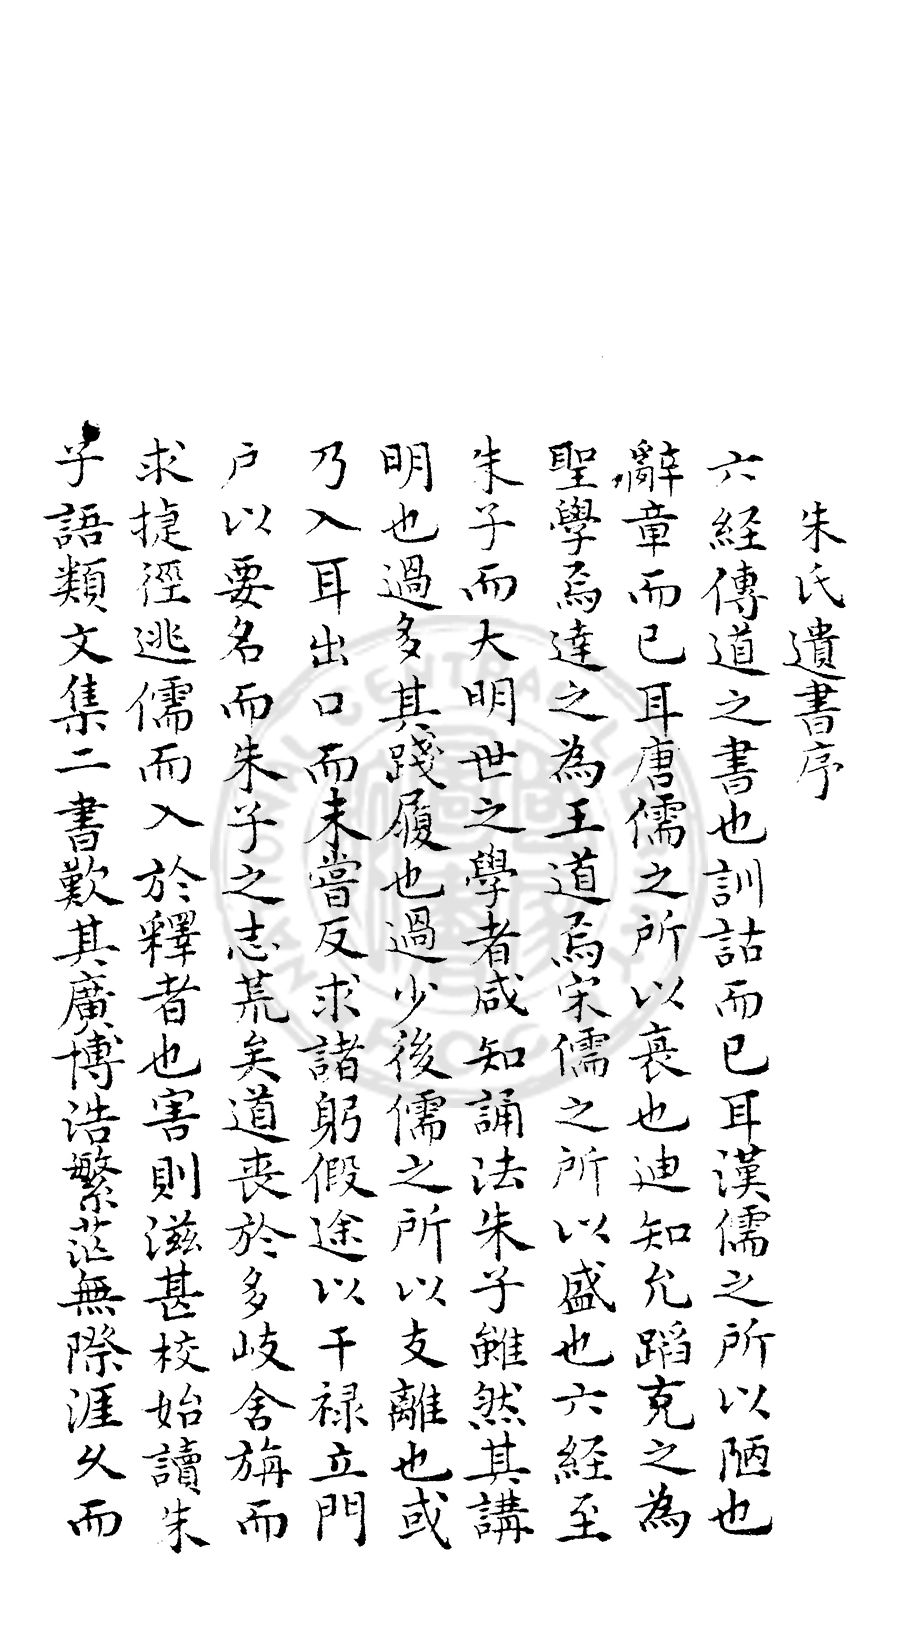 朱氏遺書序
六経傳道之書也訓詁而已耳漢儒之所以陋也
辭章而已耳唐儒之所以衰也迪知允蹈克之為
聖學焉達之為王道焉宋儒之所以盛也六経至
朱子而大明世之學者咸知誦法朱子雖然其講
明也過多其踐履也過少後儒之所以支離也或
乃入耳出口而未嘗反求諸躬假途以干祿立門
戶以要名而朱子之志荒矣道丧於多岐舍旃而
求捷徑逃儒而入於釋者也害則滋甚校始讀朱
子語類文集二書歎其廣博浩繁茫無際涯乆而